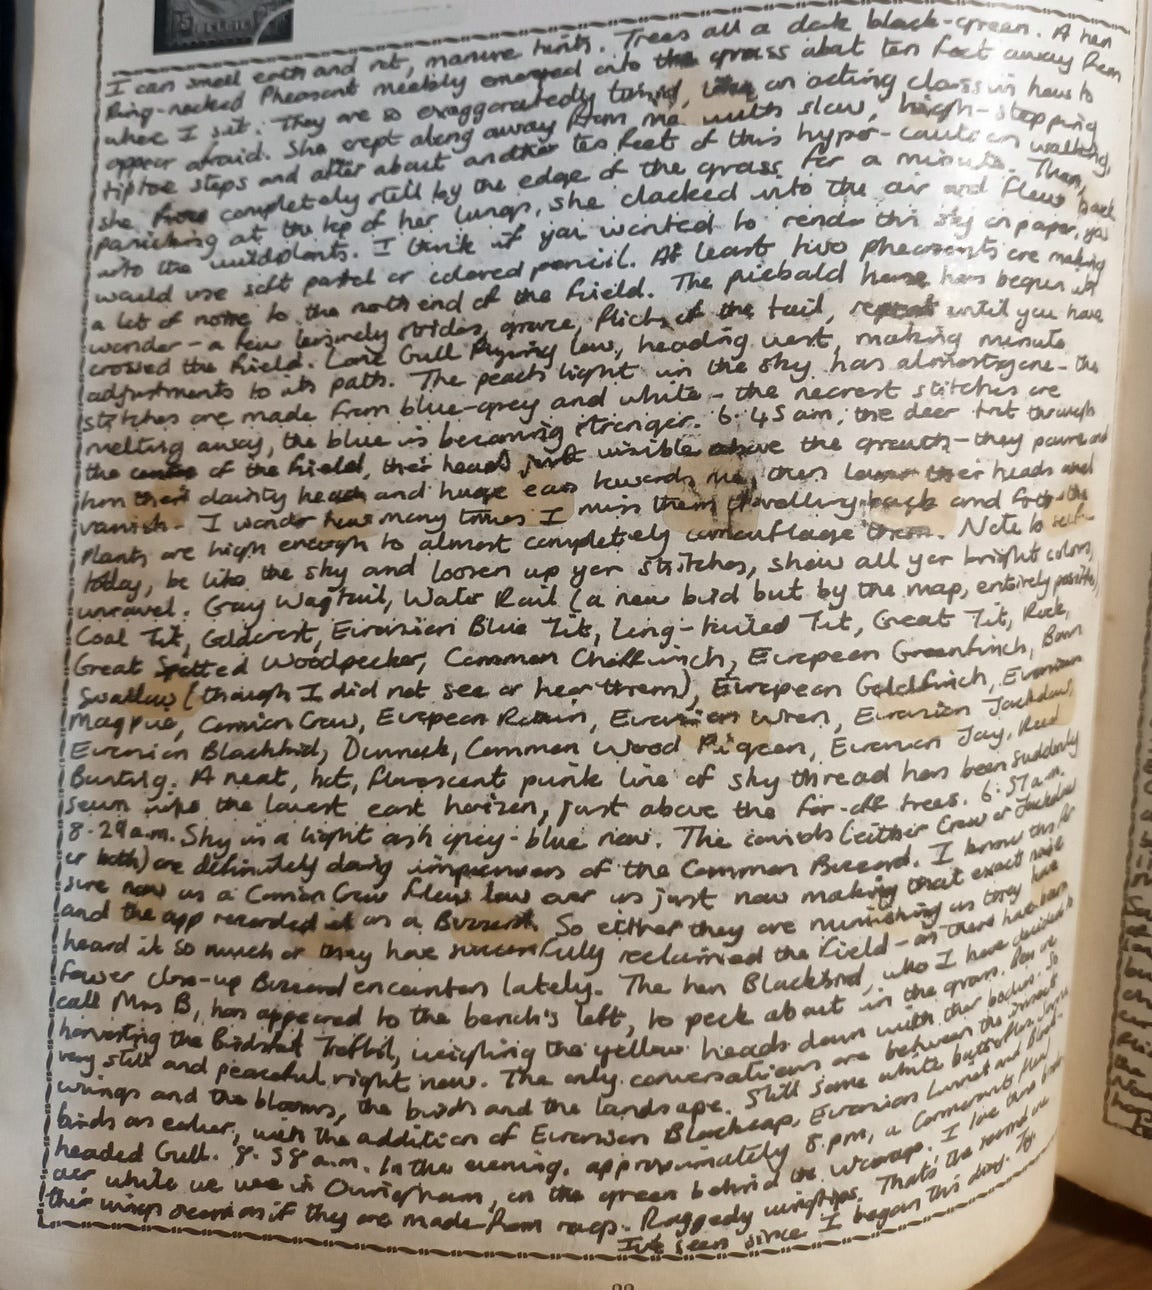 I can smell earth and rot, manure hints. Trees all a dark black-green. A hen
Ring-necked Pheasant meekly emerged onto the grass about ten feet away from
where I sit. They are so exaggeratedly timid, like an acting class in how to
appear afraid. She crept along away from me with slow, high-stepping
tiptoe steps and after about another ten feet of this hyper-cautious walking,
she froze completely still by the edge of the grass for a minute. Then,
panicking at the top of her lungs, she clacked into the air and flew back
into the wildplants. I think if you wanted to render this sky on paper, you
would use soft pastel or colored pencil. At least two pheasants are making
a lot of noise to the north end of the field. The piebald horse has begun its
wander - a few leisurely strides, graze, flick of the tail, repeat until you have
crossed the field. Lone Gull flying low, heading west, making minute
adjustments to its path. The peach light in the sky has almost gone - the
stitches are made from blue-grey and white - the nearest stitches are
melting away, the blue is becoming stronger. 6.45am, the deer trot through
the centre of the field, their heads just visible above the growth - they pause and
turn their dainty heads and huge ears towards me, then lower their heads and
vanish. I wonder how many times I miss them travelling back and forth - the
plants are high enough to almost completely camouflage them. Note to self -
today, be like the sky and loosen up yer stitches, show all yer bright colors,
unravel. Gray Wagtail, Water Rail (a new bird but by the map, entirely possible),
Coal Tit, Goldcrest, Eurasian Blue Tit, Long-tailed Tit, Great Tit, Rook,
Great Spotted Woodpecker, Common Chaffinch, European Greenfinch, Barn
Swallow (though I did not see or hear them), European Goldfinch, Eurasian
Magpie, Carrion Crow, European Robin, Eurasian Wren, Eurasian Jackdaw,
Eurasian Blackbird, Dunnock, Common Wood Pigeon, Eurasian Jay, Reed
Bunting. A neat, hot, fluorescent punk line of sky thread has been suddenly
sewn into the lowest east horizon, just above the far-off trees. 6.57a.m.
8.29a.m. Sky is a light ash grey-blue now. The corvids (either Crow or Jackdaw
or both) are definitely doing impressions of the Common Buzzard. I know this for
sure now as a Carrion Crow flew low over us just now making that exact noise
and the app recorded it as a Buzzard. So either they are mimicking as they have
heard it so much or they have successfully reclaimed the field - as there have been
fewer close-up Buzzard encounters lately. The hen Blackbird, who I have decided to
call Mrs B, has appeared to the bench's left, to peck about in the grass. Bees are
harvesting the Birdsfoot Trefoil, weighing the yellow heads down with their bodies. So
very still and peaceful right now. The only conversations are between the insect
wings and the blooms, the birds and the landscape. Still some white butterflies. Same
birds as earlier, with the addition of Eurasian Blackcap, Eurasian Linnet and Black-
headed Gull. 8.58a.m. In the evening, approximately 8.pm, a Cormorant flew
over while we were in the green behind the I love these birds
their wings seem as if they are made from rags. Raggedy wingtips. That's the second one
I've seen since I began this diary.